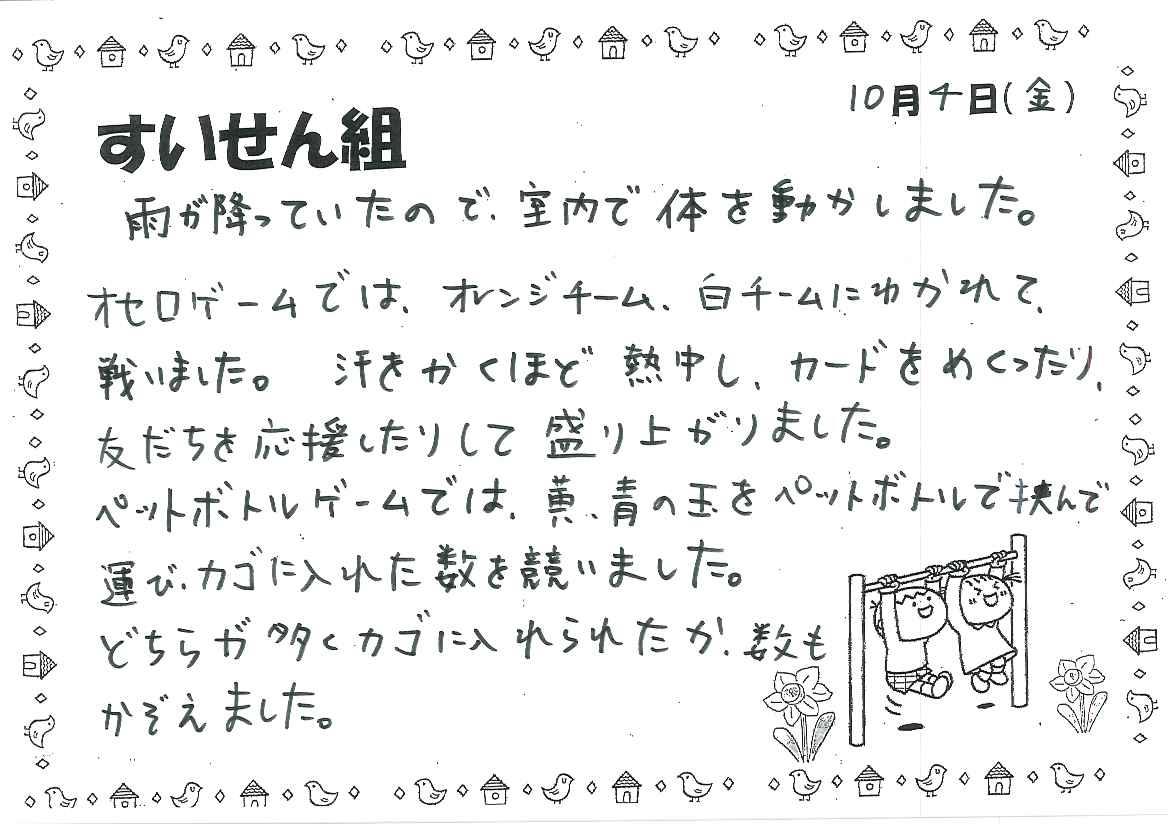 10月4日(金)
すいせん組
雨が降っていたので、室内で体を動かしました。
オセロゲームでは、オレンジチーム、白チームにわかれて、
戦いました。 汗をかくほど熱中し、カードをめくったり、
友だちを応援したりして盛り上がりました。
ペットボトルゲームでは、黄、青の玉をペットボトルで挟んで
運び、カゴに入れた数を競いました。
どちらが多くカゴに入れられたか、数も
かぞえました。